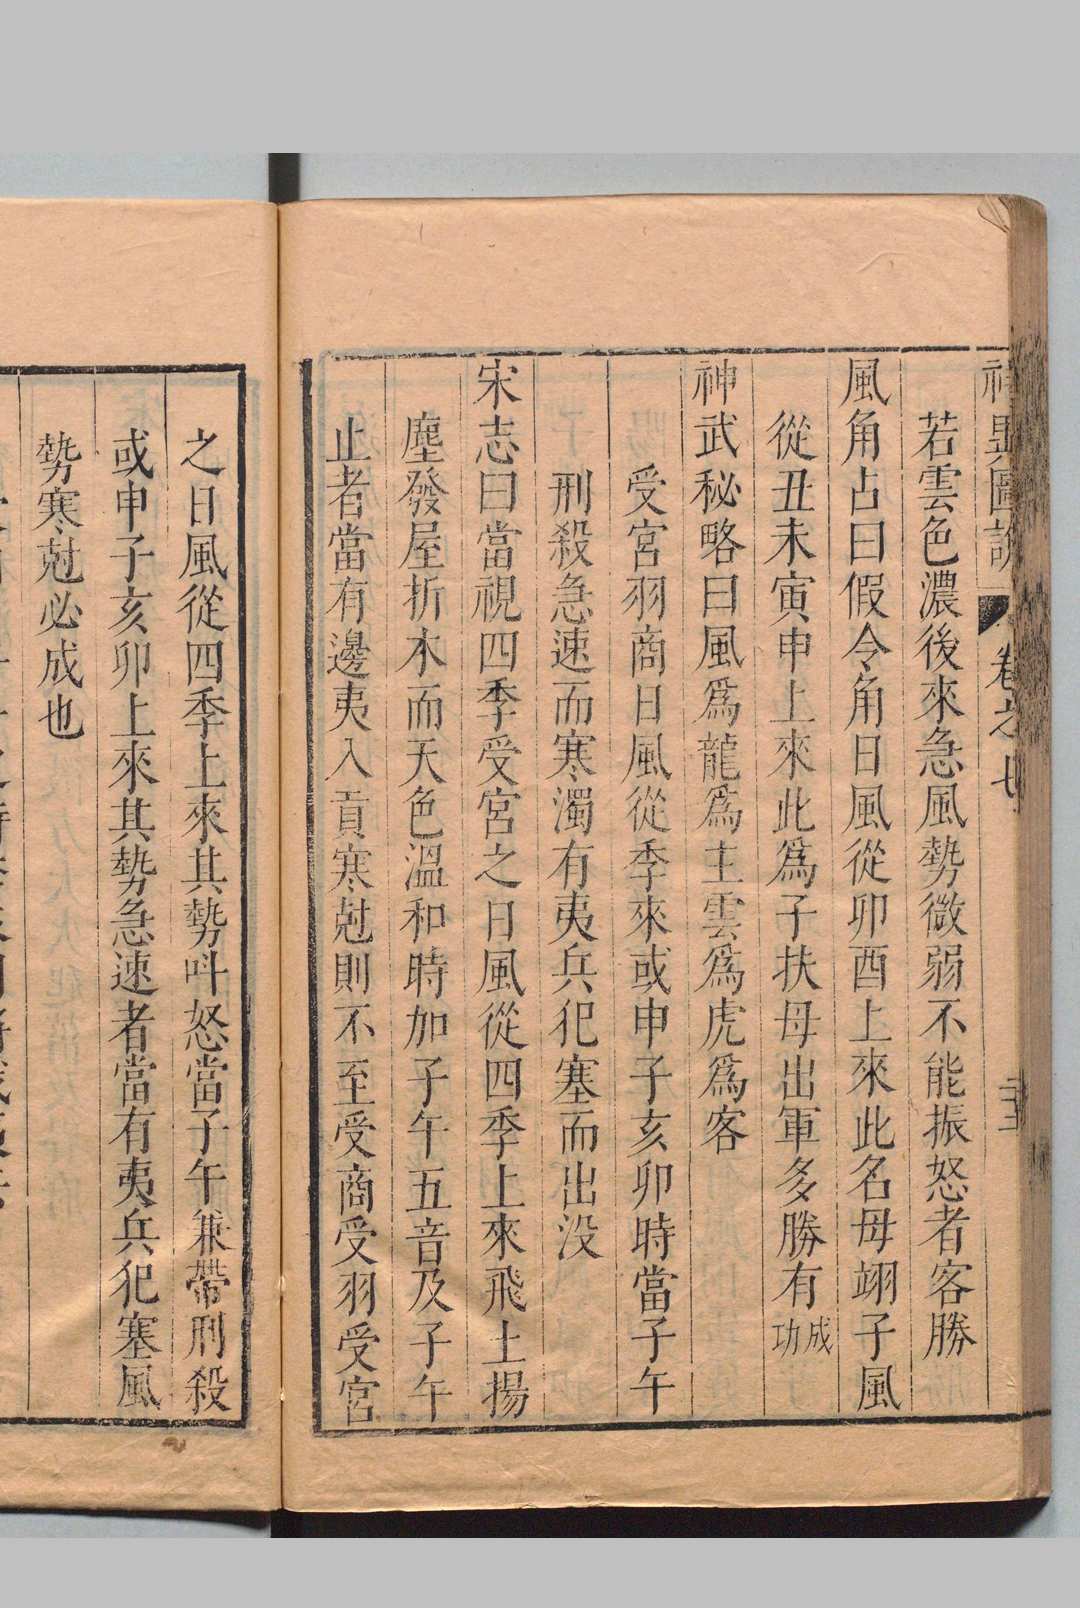 圖說 卷之七 三十二
若雲色濃後來急風勢微弱不能振怒者客勝
風角占曰假令角日風從卯酉上來此名母翊子風
從丑未寅申上來此為子扶母出軍多勝有成功
神武秘略曰風爲龍爲主雲爲虎爲客
受宮羽商日風從季來或申子亥卯時當子午
刑殺急速而寒濁有夷兵犯塞而出没
宋志曰當視四季受宮之日風從四季上來飛土揚
塵發屋折木而天色溫和時加子午五音及子午
止者當有邊夷入貢寒尅則不至受商受羽受宮
之日風從四季上來其勢呌怒當子午兼帶刑殺
或申子亥卯上來其勢急速者當有夷兵犯塞風
勢寒尅必成也